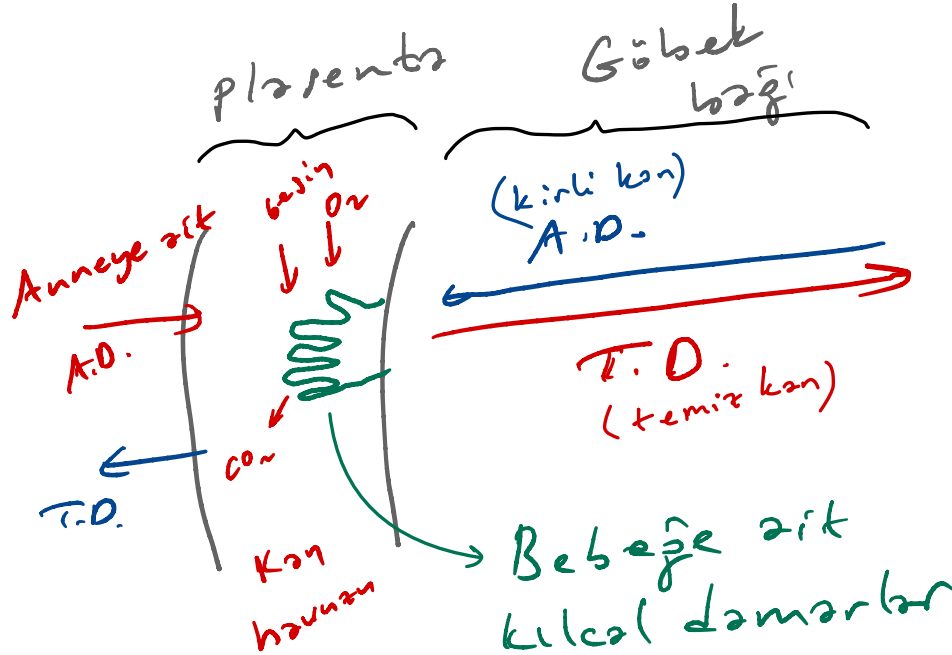 plasenta
Göbek
bağı
besin
O₂
(kirli kan)
A.D.
Anneye ait
A.D.
T.D.
(temiz kan)
CO₂
T.D.
Kan
havuzu
Bebeğe ait
kılcal damarlar